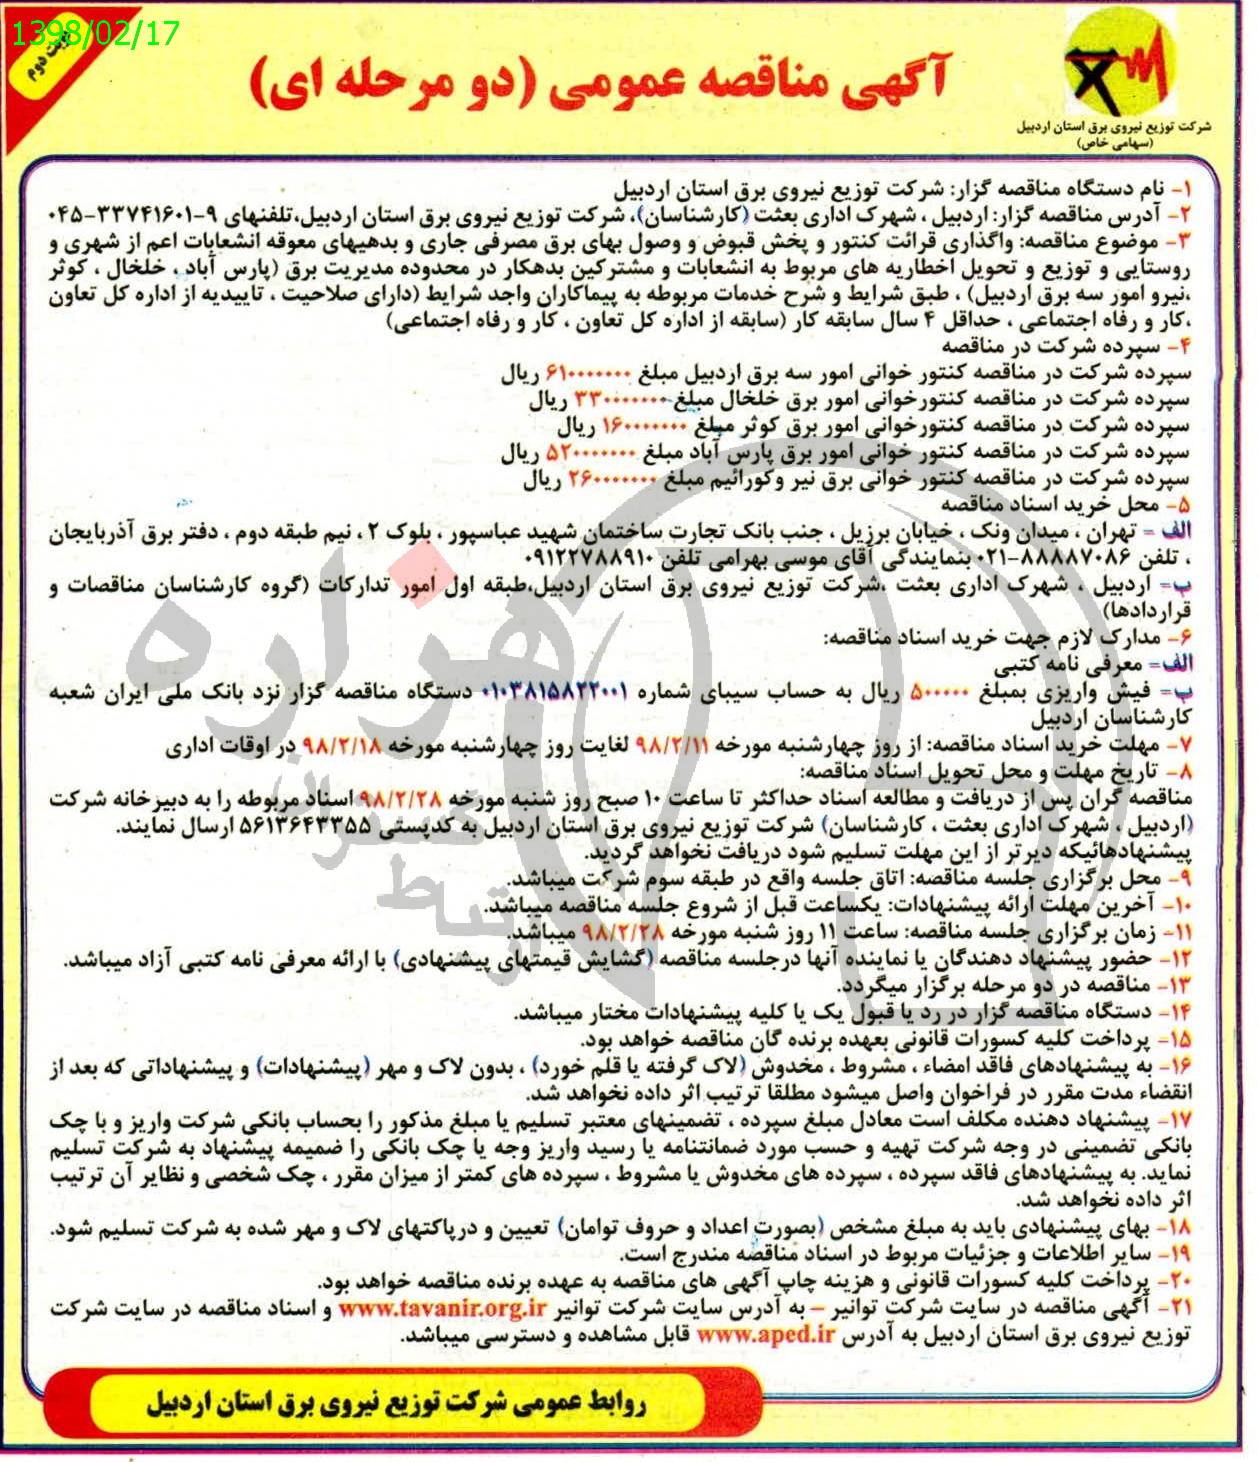 1398/02/17
نوبت دوم
آگهی مناقصه عمومی (دو مرحله ای)
شرکت توزیع نیروی برق استان اردبیل
(سهامی خاص)
۱- نام دستگاه مناقصه گزار: شرکت توزیع نیروی برق استان اردبیل
۲- آدرس مناقصه گزار: اردبیل ، شهرک اداری بعثت (کارشناسان)، شرکت توزیع نیروی برق استان اردبیل،تلفنهای ۹-۳۳۷۴۱۶۰۱-۰۴۵
۳- موضوع مناقصه: واگذاری قرائت کنتور و پخش قبوض و وصول بهای برق مصرفی جاری و بدهیهای معوقه انشعابات اعم از شهری و
روستایی و توزیع و تحویل اخطاریه های مربوط به انشعابات و مشترکین بدهکار در محدوده مدیریت برق (پارس آباد ، خلخال ، کوثر
،نیرو امور سه برق اردبیل) ، طبق شرایط و شرح خدمات مربوطه به پیماکاران واجد شرایط (دارای صلاحیت ، تاییدیه از اداره کل تعاون
،کار و رفاه اجتماعی ، حداقل ۴ سال سابقه کار (سابقه از اداره کل تعاون ، کار و رفاه اجتماعی)
۴- سپرده شرکت در مناقصه
سپرده شرکت در مناقصه کنتور خوانی امور سه برق اردبیل مبلغ ۶۱۰۰۰۰۰۰۰ ریال
سپرده شرکت در مناقصه کنتورخوانی امور برق خلخال مبلغ ۳۳۰۰۰۰۰۰۰ ریال
سپرده شرکت در مناقصه کنتورخوانی امور برق کوثر مبلغ ۱۶۰۰۰۰۰۰۰ ریال
سپرده شرکت در مناقصه کنتور خوانی امور برق پارس آباد مبلغ ۵۲۰۰۰۰۰۰۰ ریال
سپرده شرکت در مناقصه کنتور خوانی برق نیر وکورائیم مبلغ ۲۶۰۰۰۰۰۰۰ ریال
۵- محل خرید اسناد مناقصه
الف - تهران ، میدان ونک ، خیابان برزیل ، جنب بانک تجارت ساختمان شهید عباسپور ، بلوک ۲ ، نیم طبقه دوم ، دفتر برق آذربایجان
، تلفن ۸۸۸۸۷۰۸۶-۰۲۱ بنمایندگی آقای موسی بهرامی تلفن ۰۹۱۲۲۷۸۸۹۱۰
ب- اردبیل ، شهرک اداری بعثت ،شرکت توزیع نیروی برق استان اردبیل،طبقه اول امور تدارکات (گروه کارشناسان مناقصات و
قراردادها)
۶- مدارک لازم جهت خرید اسناد مناقصه:
الف- معرفی نامه کتبی
ب- فیش واریزی بمبلغ ۵۰۰۰۰۰ ریال به حساب سیبای شماره ۰۱۰۳۸۱۵۸۲۲۰۰۱ دستگاه مناقصه گزار نزد بانک ملی ایران شعبه
کارشناسان اردبیل
۷- مهلت خرید اسناد مناقصه: از روز چهارشنبه مورخه ۹۸/۲/۱۱ لغایت روز چهارشنبه مورخه ۹۸/۲/۱۸ در اوقات اداری
۸- تاریخ مهلت و محل تحویل اسناد مناقصه:
مناقصه گران پس از دریافت و مطالعه اسناد حداکثر تا ساعت ۱۰ صبح روز شنبه مورخه ۹۸/۲/۲۸ اسناد مربوطه را به دبیرخانه شرکت
(اردبیل ، شهرک اداری بعثت ، کارشناسان) شرکت توزیع نیروی برق استان اردبیل به کدپستی ۵۶۱۳۶۴۳۳۵۵ ارسال نمایند.
پیشنهادهائیکه دیرتر از این مهلت تسلیم شود دریافت نخواهد گردید.
۹- محل برگزاری جلسه مناقصه: اتاق جلسه واقع در طبقه سوم شرکت میباشد.
۱۰- آخرین مهلت ارائه پیشنهادات: یکساعت قبل از شروع جلسه مناقصه میباشد.
۱۱- زمان برگزاری جلسه مناقصه: ساعت ۱۱ روز شنبه مورخه ۹۸/۲/۲۸ میباشد.
۱۲- حضور پیشنهاد دهندگان یا نماینده آنها درجلسه مناقصه (گشایش قیمتهای پیشنهادی) با ارائه معرفی نامه کتبی آزاد میباشد.
۱۳- مناقصه در دو مرحله برگزار میگردد.
۱۴- دستگاه مناقصه گزار در رد یا قبول یک یا کلیه پیشنهادات مختار میباشد.
۱۵- پرداخت کلیه کسورات قانونی بعهده برنده گان مناقصه خواهد بود.
۱۶- به پیشنهادهای فاقد امضاء ، مشروط ، مخدوش (لاک گرفته یا قلم خورد) ، بدون لاک و مهر (پیشنهادات) و پیشنهاداتی که بعد از
انقضاء مدت مقرر در فراخوان واصل میشود مطلقا ترتیب اثر داده نخواهد شد.
۱۷- پیشنهاد دهنده مکلف است معادل مبلغ سپرده ، تضمینهای معتبر تسلیم یا مبلغ مذکور را بحساب بانکی شرکت واریز و با چک
بانکی تضمینی در وجه شرکت تهیه و حسب مورد ضمانتنامه یا رسید واریز وجه یا چک بانکی را ضمیمه پیشنهاد به شرکت تسلیم
نماید. به پیشنهادهای فاقد سپرده ، سپرده های مخدوش یا مشروط ، سپرده های کمتر از میزان مقرر ، چک شخصی و نظایر آن ترتیب
اثر داده نخواهد شد.
۱۸- بهای پیشنهادی باید به مبلغ مشخص (بصورت اعداد و حروف توامان) تعیین و درپاکتهای لاک و مهر شده به شرکت تسلیم شود.
۱۹- سایر اطلاعات و جزئیات مربوط در اسناد مناقصه مندرج است.
۲۰- پرداخت کلیه کسورات قانونی و هزینه چاپ آگهی های مناقصه به عهده برنده مناقصه خواهد بود.
۲۱- آگهی مناقصه در سایت شرکت توانیر – به آدرس سایت شرکت توانیر www.tavanir.org.ir و اسناد مناقصه در سایت شرکت
توزیع نیروی برق استان اردبیل به آدرس www.aped.ir قابل مشاهده و دسترسی میباشد.
روابط عمومی شرکت توزیع نیروی برق استان اردبیل
هزاره
گستران
ارتباط